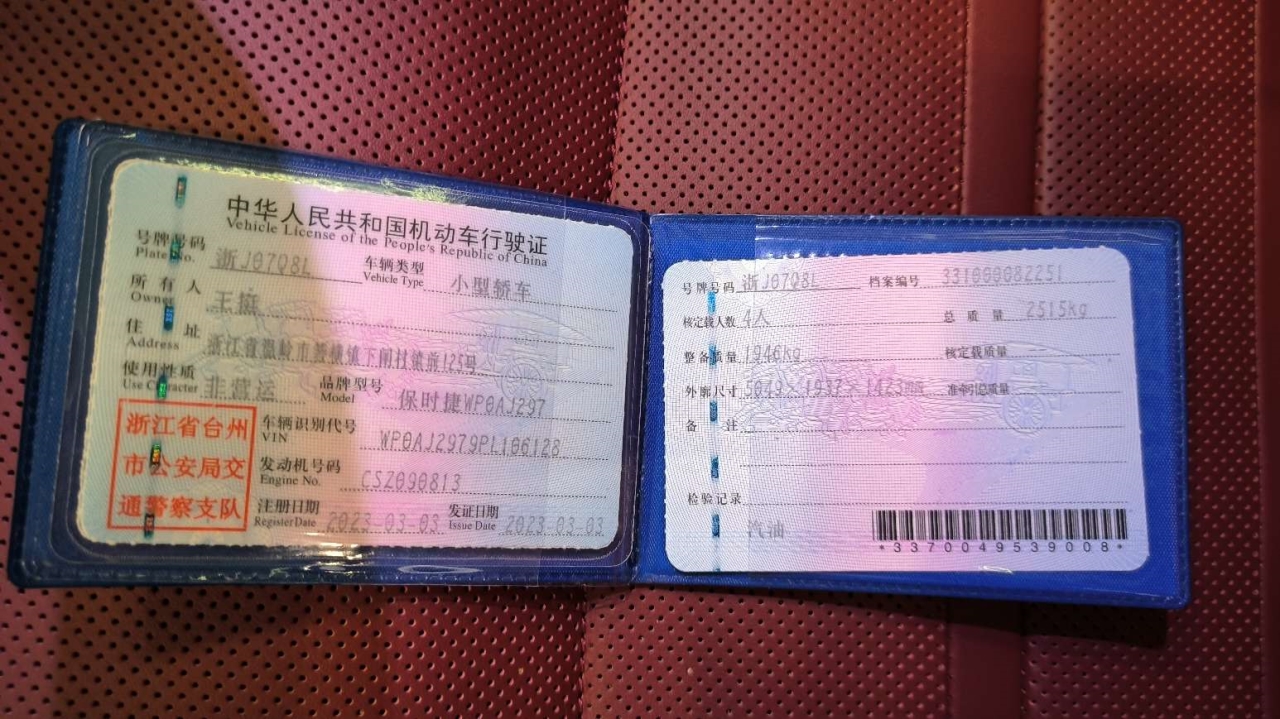 中华人民共和国机动车行驶证
Vehicle License of the People's Republic of China
号牌号码 浙J07Q8L 车辆类型 小型轿车
Plate No. Vehicle Type
所有人 王
Owner
住址 浙江省温岭市 镇下闸村镇前125号
Address
使用性质 非营运 品牌型号 保时捷WP0AJ297
Use Character Model
浙江省台州
市公安局交
通警察支队
车辆识别代号 WP0AJ2979PL106128
VIN
发动机号码 CSZ090813
Engine No.
注册日期 2023-03-03 发证日期 2023-03-03
Register Date Issue Date
号牌号码 浙J07Q8L 档案编号 331000082251
核定载人数 4人 总质量 2515kg
整备质量 1946kg 核定载质量
外廓尺寸 5049×1937×1423mm 准牵引总质量
备注
检验记录
汽油
*3370049539008*